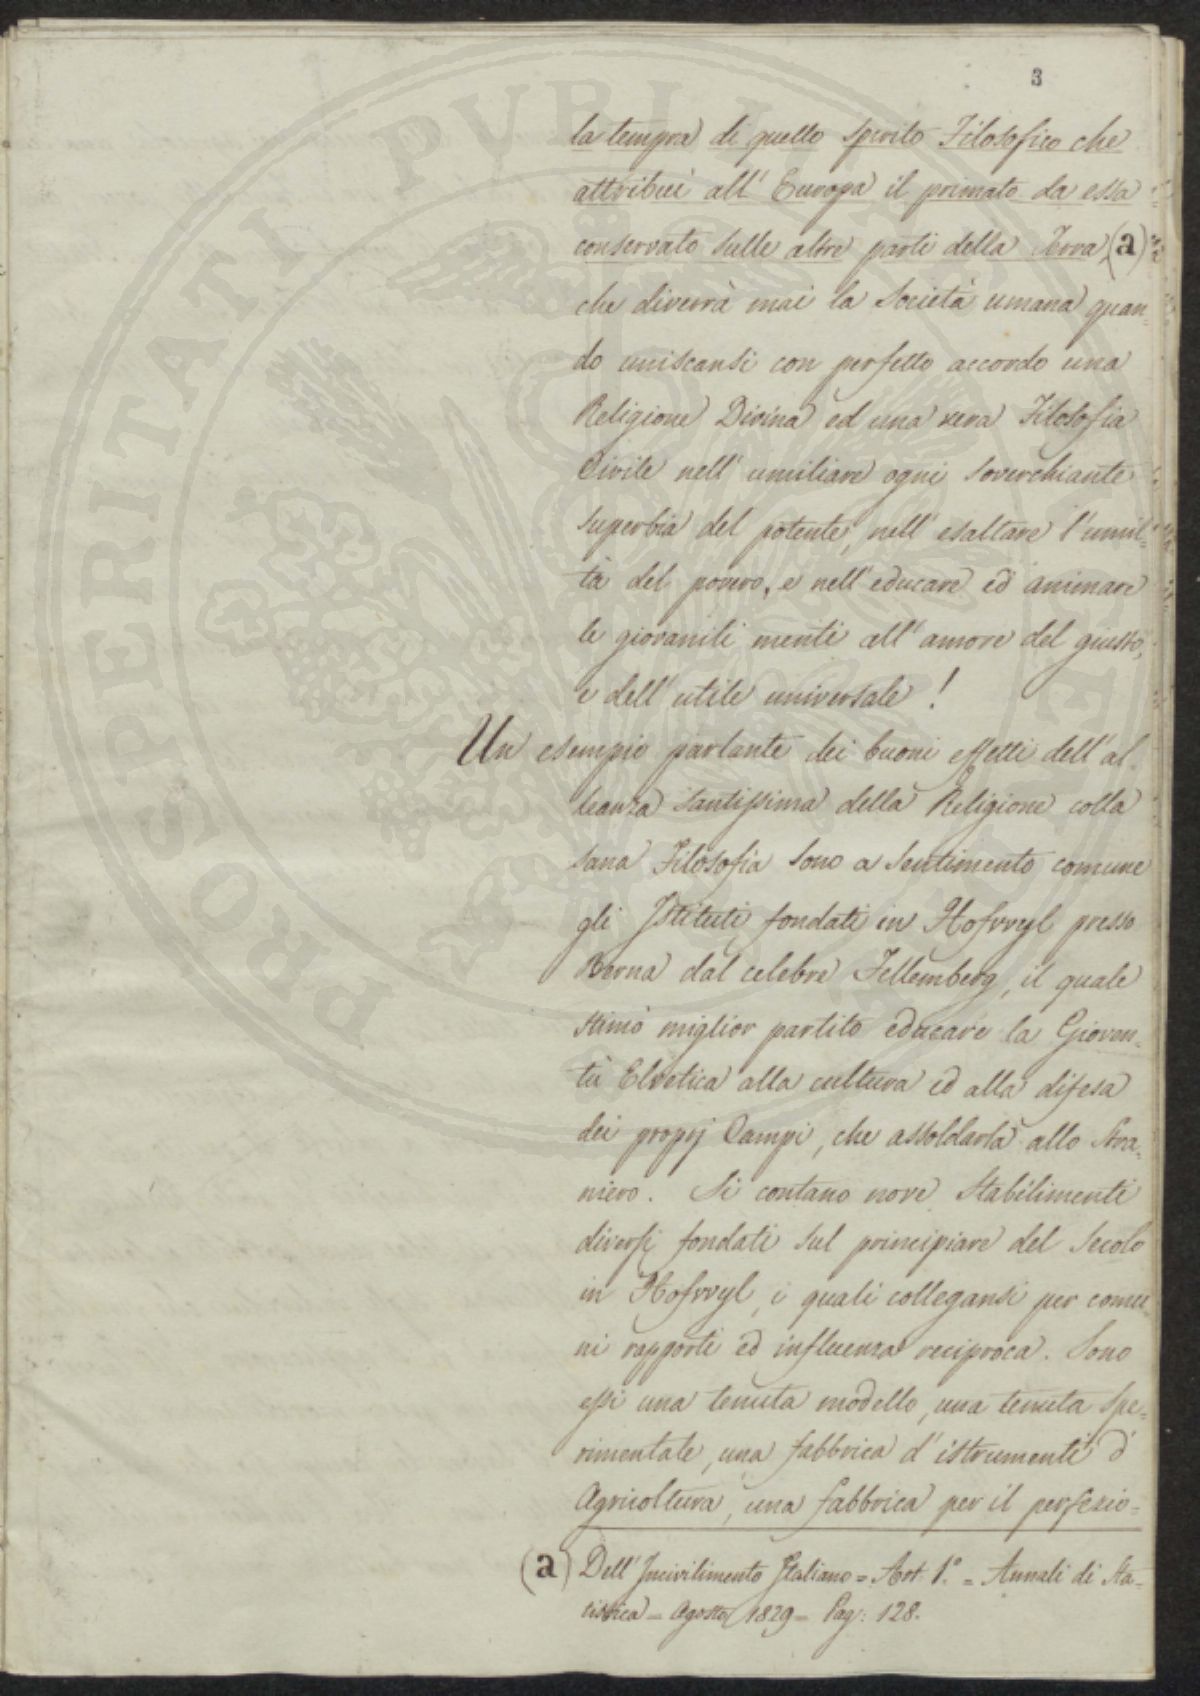 3
la tempra di quello spirito Filosofico che
attribuì all' Europa il primato da essa
conservato sulle altre parti della Terra (a)
che diverrà mai la Società umana quan-
do uniscansi con perfetto accordo una
Religione Divina ed una vera Filosofia
Civile nell' umiliare ogni soverchiante
superbia del potente, nell' esaltare l'umil-
tà del povero, e nell' educare ed animare
le giovanili menti all' amore del giusto,
e dell' utile universale!
Un esempio parlante dei buoni effetti dell' al-
leanza santissima della Religione colla
sana Filosofia sono a sentimento comune
gli Istituti fondati in Hofvvyl presso
Berna dal celebre Fellemberg, il quale
stimò miglior partito educare la Gioven-
tù Elvetica alla cultura ed alla difesa
dei proprj Campi, che assoldarla allo Stra-
niero. Si contano nove Stabilimenti
diversi fondati sul principiare del Secolo
in Hofvvyl, i quali collegansi per comu
ni rapporti ed influenza reciproca. Sono
essi una tenuta modello, una tenuta spe-
rimentale, una fabbrica d' istrumenti d'
Agricoltura, una fabbrica per il perfezio-
(a) Dell' Incivilimento Italiano = Art. 1.° = Annali di Sta-
tistica = Agosto 1829 = Pag: 128.
PROSPERITATI PUBLICAE